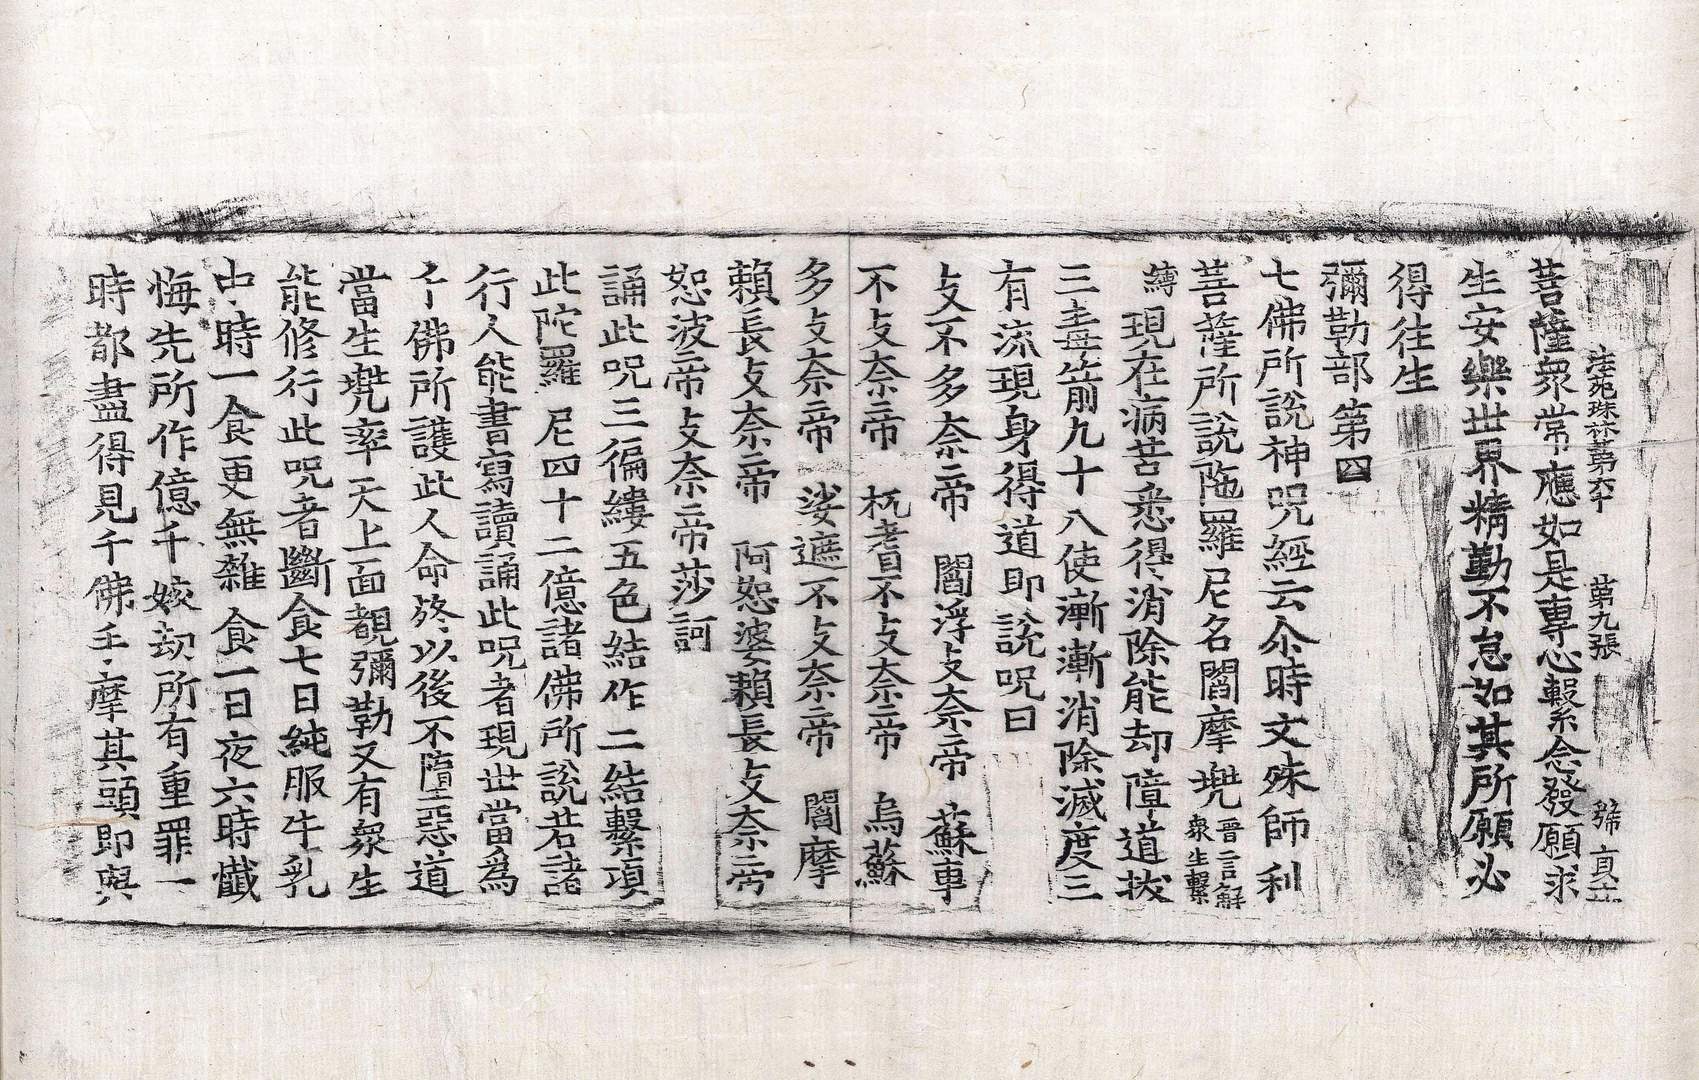 法苑珠林第六十　第九張　號
菩薩衆常應如是專心繫念發願求
生安樂世界精勤不怠如其所願必
得往生
彌勒部第四
七佛所說神呪經云尒時文殊師利
菩薩所說陁羅尼名閻摩兠晋言解衆生繫
縛現在病苦悉得消除能却障道拔
三毒箭九十八使漸漸消除滅度三
有流現身得道即說呪曰
攴不多奈帝　閻浮攴奈帝　蘇車
不攴奈帝　杋耆不攴奈帝　烏蘇
多攴奈帝　娑遮不攴奈帝　閻摩
賴長攴奈帝　阿恕婆賴長攴奈帝
恕波帝攴奈帝莎訶
誦此呪三徧縷五色結作二結繫項
此陀羅尼四十二億諸佛所說若諸
行人能書寫讀誦此呪者現世當爲
千佛所護此人命終以後不墮惡道
當生兠率天上面覩彌勒又有衆生
能修行此呪者斷食七日純服牛乳
中時一食更無雜食一日夜六時懺
悔先所作億千姟劫所有重罪一
時都盡得見千佛手摩其頭即與